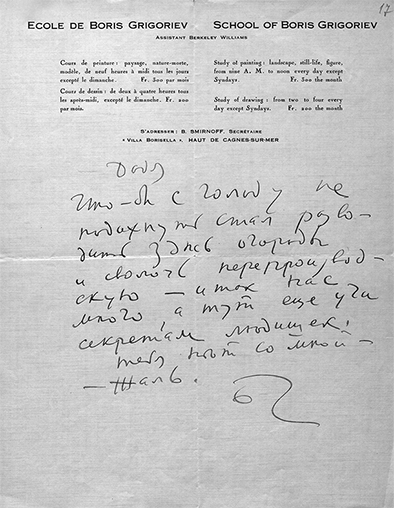 17
ECOLE DE BORIS GRIGORIEV SCHOOL OF BORIS GRIGORIEV
ASSISTANT BERKELEY WILLIAMS
Cours de peinture: paysage, nature-morte,
modèle, de neuf heures à midi tous les jours
excepté le dimanche. Fr. 300 par mois
Cours de dessin: de deux à quatre heures tous
les après-midi, excepté le dimanche. Fr. 200
par mois.
Study of painting: landscape, still-life, figure,
from nine A. M. to noon every day except
Syndays. Fr. 300 the month
Study of drawing: from two to four every
day except Syndays. Fr. 200 the month
S'ADRESSER: B. SMIRNOFF, Secrétaire
« VILLA BORISELLA ». HAUT DE CAGNES-SUR-MER
Додя
Что-бы с голоду не
подохнуть стал разво-
дить здесь огороды
и сволочь перепроизвод-
скую – и так нас
много, а тут еще учи
секретам людишек.
тебя нет со мной –
– жаль.
БГ